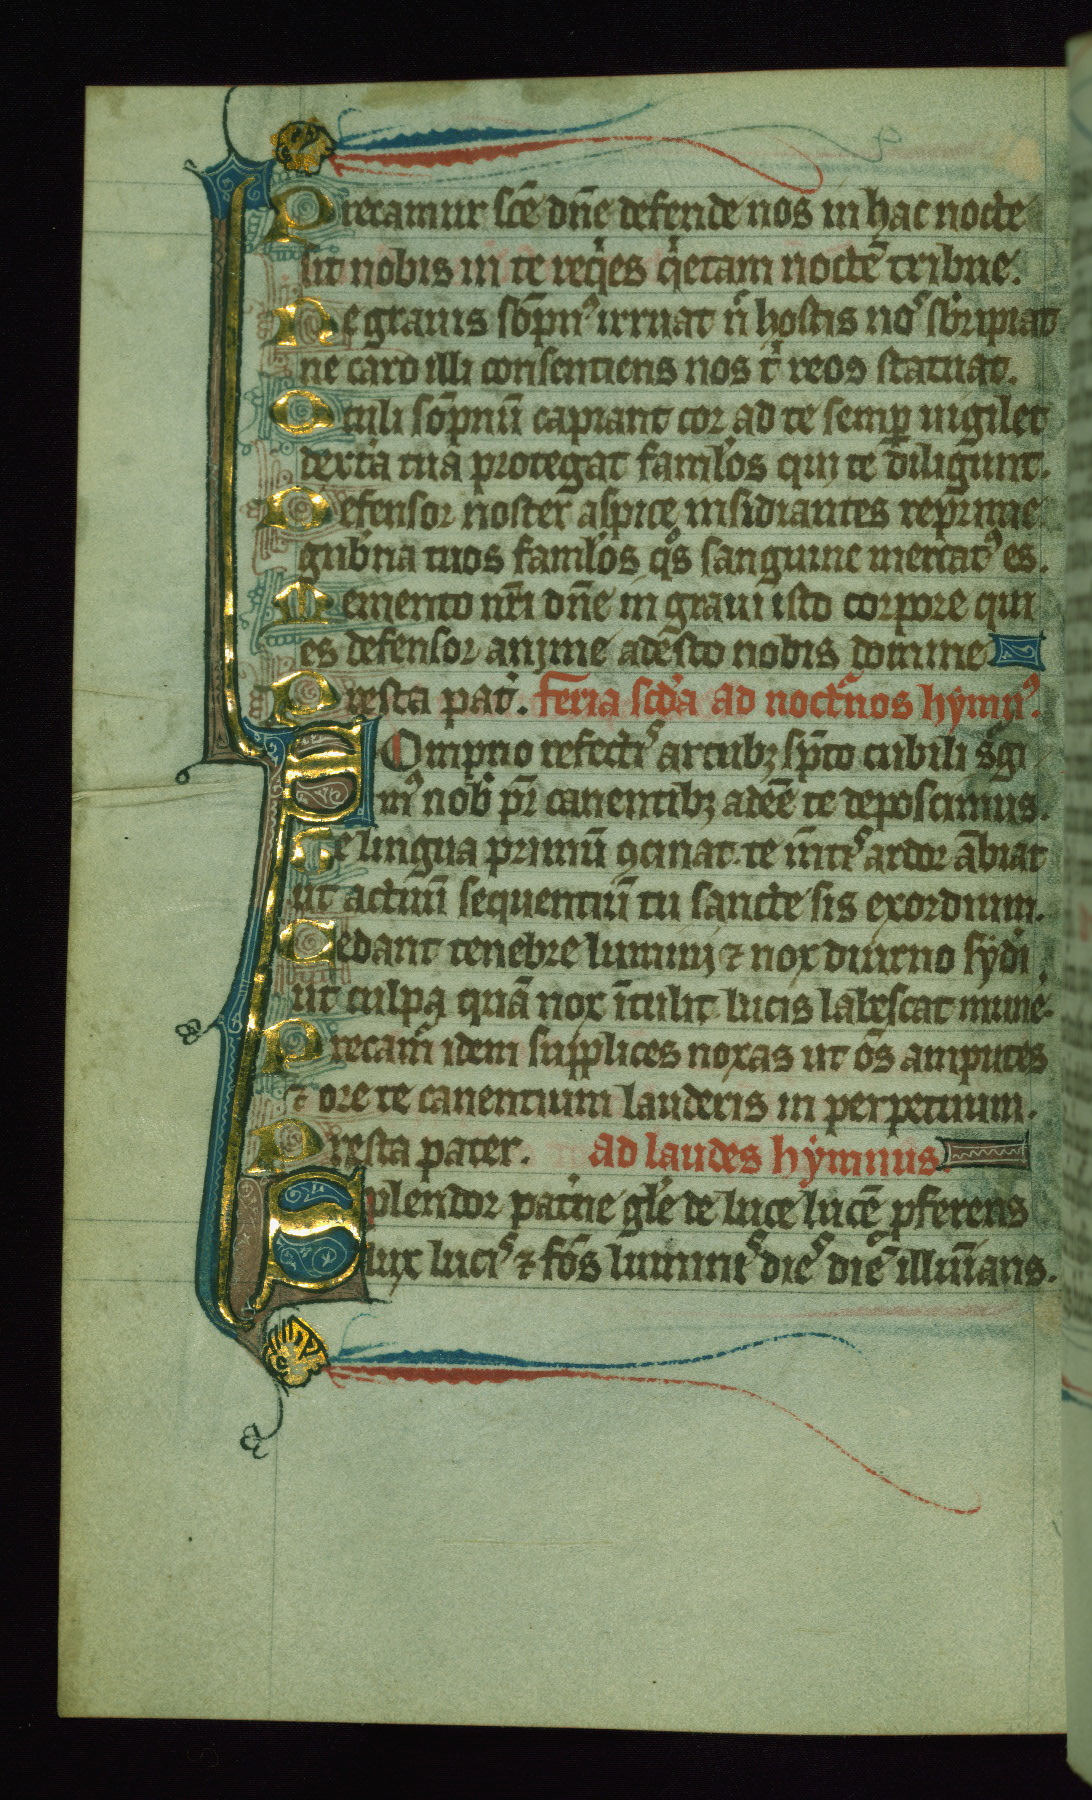 Precamur sc̄e dn̄e defende nos in hac nocte
sit nobis in te reqͥes qͥetam noctē tribue.
Ne grauis sōpnꝰ irruat n̄ hostis noˢ sbr̍ipiat
ne caro illi consentiens nos t̍ reos statuat.
Oculi sōpnū capiant cor ad te semꝑ uigilet
dext̍a tua protegat famĺos qui te diligunt.
Defensor noster aspice insidiantes reprime
gub̍na tuos famĺos qͦs sanguine mercatꝰ es.
Memento nr̄i dn̄e in graui isto corpore qui
es defensor anime adesto nobis domine
Presta pat̍. feria scd̄a ad noct̍nos hymnꝰ.
Sompno refectiˢ artubꝫ sp̄to cubili s̄gi
mꝰ nob̍ pr̄ canentibꝫ adeē te deposcimus.
Te lingua primū ꝯcinat te m̄tiˢ ardor ābiat
ut actuū sequentiū tu sancte sis exordium.
Cedant tenebre lumini ⁊ nox diurno syd̍i
ut culpa quā nox ītulit lucis labescat mune̍.
Precam̍ idem supplices noxas ut oīs amputes
⁊ ore te canentium lauderis in perpetuum.
Presta pater. ad laudes hymnus.
Splendor pat̍ne gl̄e de luce lucē ꝓferens
lux luciˢ ⁊ fōs luminiˢ dieˢ diē illuīans.